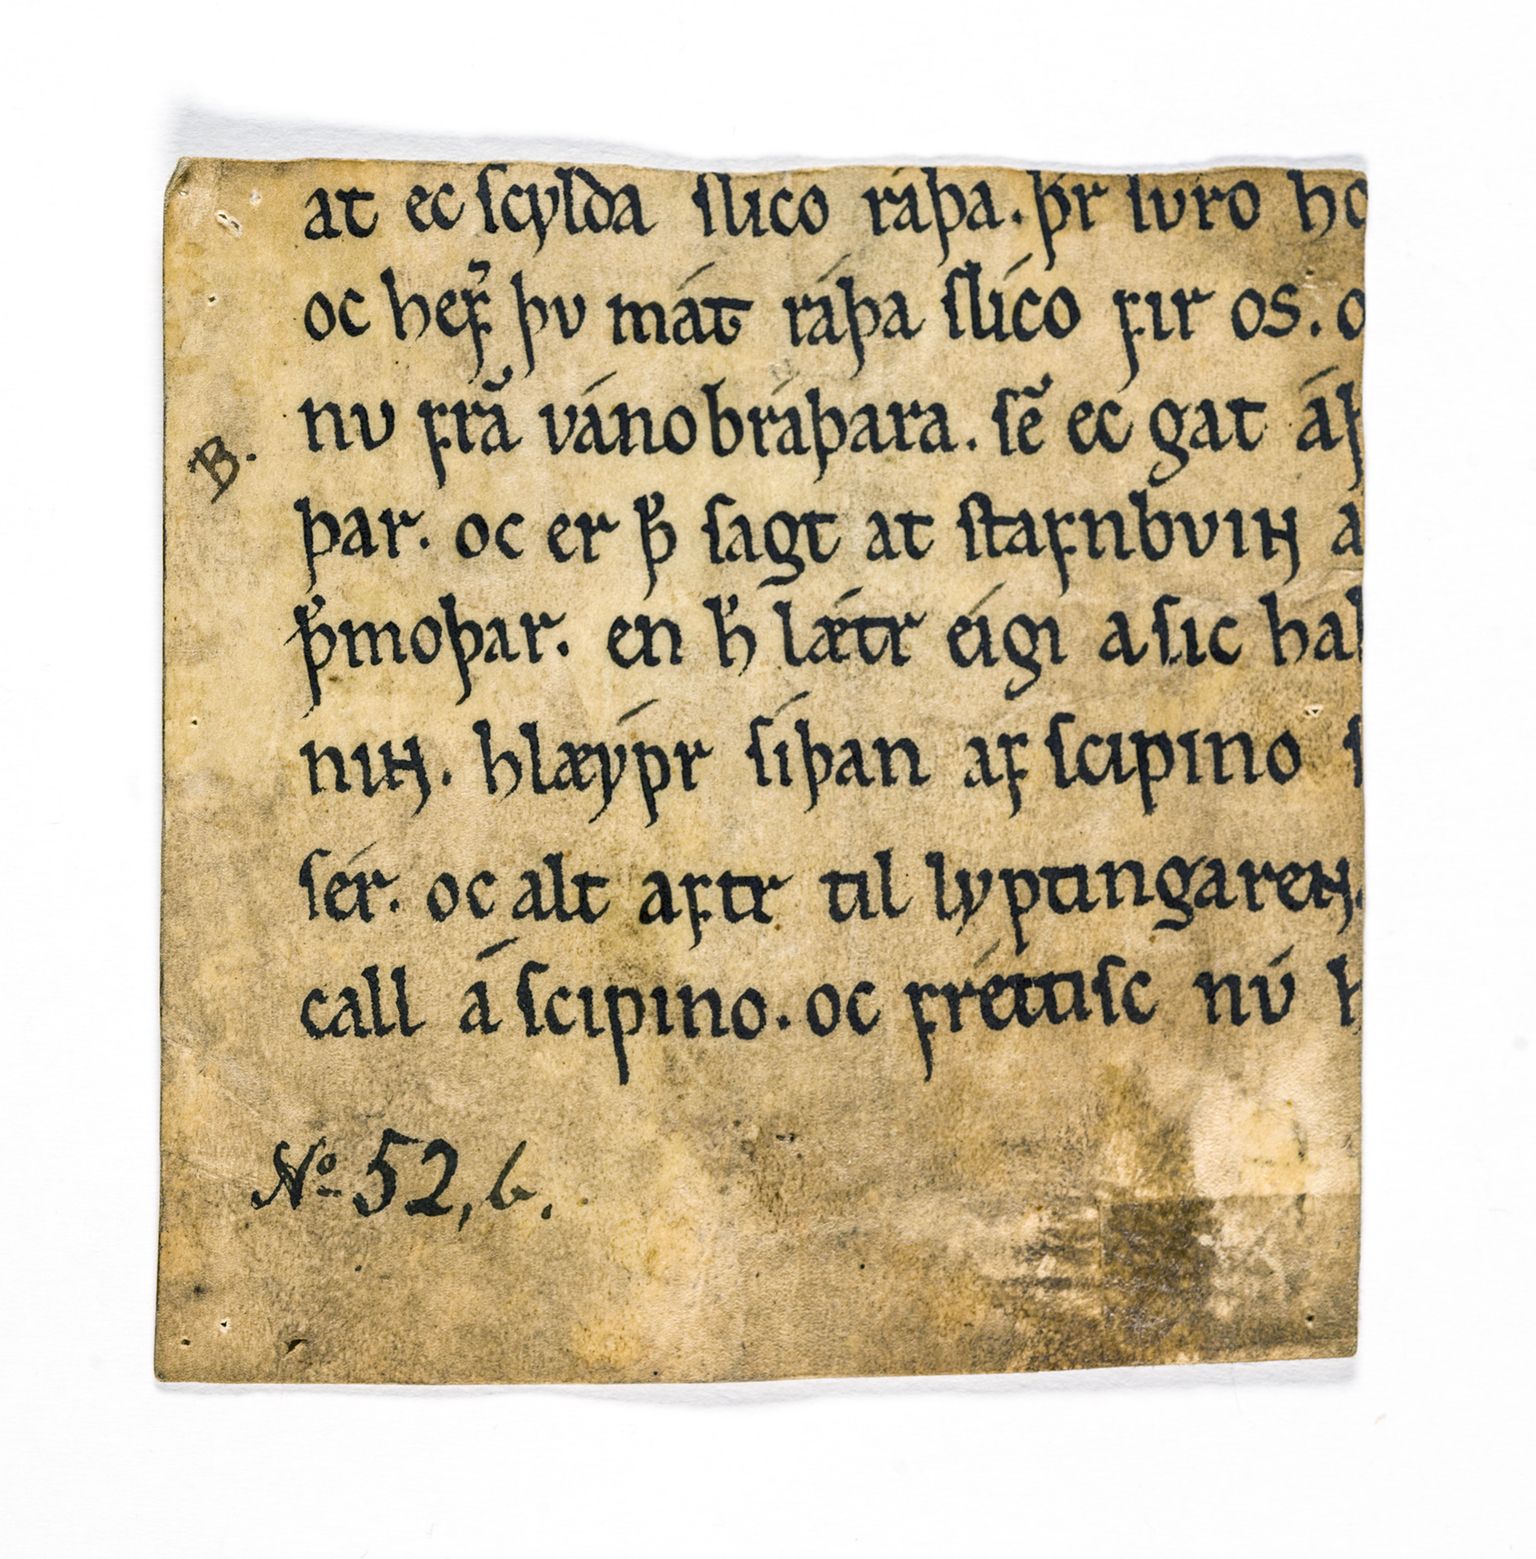 at ec ſcylda ſlico ráþa. þ́ır ſvro hc
oc hef̛ þv mát ráþa ſlíco fır os. o
nv frā váno bráþara. ſē ec gat áf
þar. oc er þ̄ ſagt at ſtafnbvıɴ a
þ̄moþar. en h̄ lætr eígı a ſıc hal
nıɴ. hlæýpr ſíþan af ſcıpıno ſ
ſér. oc alt aftr tıl lyptıngareɴ.
call á ſcıpıno. oc fréttıſc nv́ h
B.
Nº 52, b.